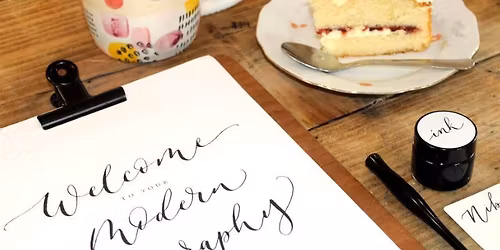 Welcome
TO YOUR
Modern
graphy
ink
Nib